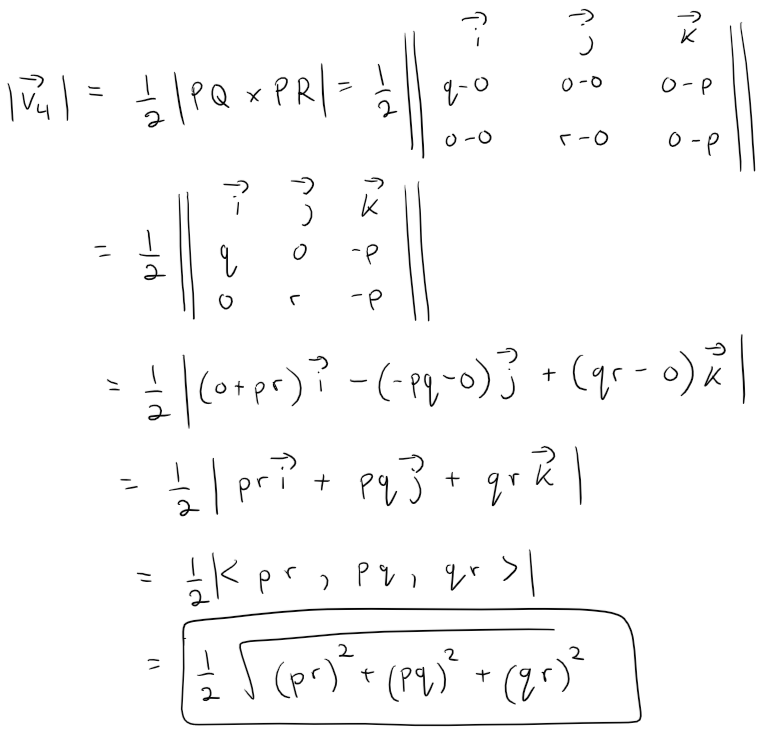 |v⃗₄| = 1/2 |PQ × PR| = 1/2 || i⃗ j⃗ k⃗
q-0 0-0 0-p
0-0 r-0 0-p ||
= 1/2 || i⃗ j⃗ k⃗
q 0 -p
0 r -p ||
= 1/2 |(0+pr) i⃗ - (-pq-0) j⃗ + (qr - 0) k⃗|
= 1/2 | pr i⃗ + pq j⃗ + qr k⃗ |
= 1/2 |< pr , pq , qr >|
= 1/2 √((pr)² + (pq)² + (qr)²)